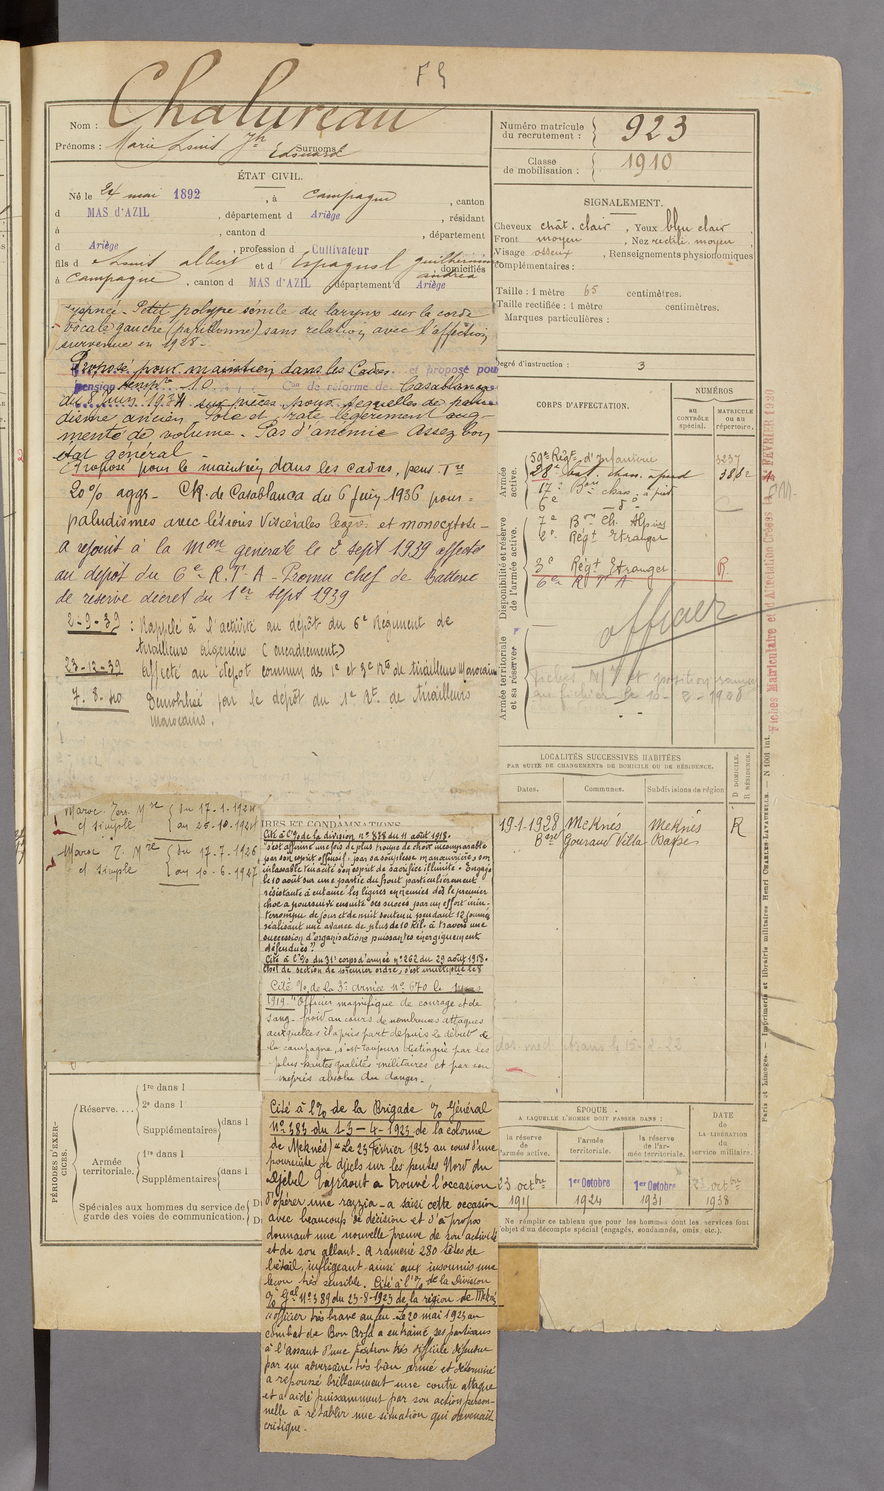 F 9
Nom : Chalureau
Prénoms : Marie Louis Jh Edouard Surnoms :
Numéro matricule du recrutement : 923
Classe de mobilisation : 1910
ÉTAT CIVIL.
Né le 24 mai 1892, à Campagne, canton
d MAS d'AZIL, département d Ariège, résidant
à , canton d , département
d Ariège, profession d Cultivateur
fils d Louis Albert et d Espagnol Guilhermine Andréa, domiciliés
à Campagne, canton d MAS d'AZIL département d Ariège
SIGNALEMENT.
Cheveux chât. clair, Yeux bleu clair
Front moyen, Nez rectil. moyen,
Visage osseux, Renseignements physionomiques
complémentaires :
Taille : 1 mètre 65 centimètres.
Taille rectifiée : 1 mètre centimètres.
Marques particulières :
Degré d'instruction : 3
Petit polype sénile du larynx sur la corde
vocale gauche (papillonne) sans relation avec l'affection
survenue en 1928 -
Proposé pour maintien dans les Cadres et proposé pour
pension temp^re 10 Con de réforme de Casablanca
du 8 Juin 1934 sur pièces pour séquelles de palu-
disme ancien foie et rate légèrement aug-
menté de volume. Pas d'anémie assez bon
état général -
Proposé pour le maintien dans les cadres, pens. Tre
20% aggr - CR. de Casablanca du 6 juin 1936 pour =
paludismes avec lésions viscérales legs. et monocytose -
A rejoint à la Mon générale le 2 sept 1939 affecté
au dépôt du 6e R.T.A - Promu chef de Batterie
de réserve décret du 1er sept 1939
2-9-39 : Rappelé à l'activité au dépôt du 6e Régiment de
tirailleurs algériens (encadrement)
23-12-39 Affecté au dépôt commun des 1e et 3e Rts de tirailleurs Marocains
7. 8. 40 Démobilisé par le dépôt du 1e Rt. de tirailleurs
marocains.
CORPS D'AFFECTATION.
NUMÉROS
au CONTRÔLE spécial.
MATRICULE OU AU répertoire.
Armée active.
59e Régt d'Infanterie 3237
28e Bat. chas. à pied 3882
17e Bon chas. à pied
6e - d° -
Disponibilité et réserve de l'armée active.
7e Bon Ch. Alpins
2e Régt Etranger
3e Régt Etranger R.
6e R T A
officier
Armée territoriale et sa réserve
Fiches Mle et position
au fichier le 10-8-1928
Fiches Matriculaire et d'Affectation Créées le FÉVRIER
LOCALITÉS SUCCESSIVES HABITÉES
PAR SUITE DE CHANGEMENTS DE DOMICILE OU DE RÉSIDENCE.
Dates. Communes. Subdivisions de région
D DOMICILE. R RÉSIDENCE.
19-1-1928 Meknès Meknès R
Bard Gouraud Villa
Maroc Terr. Mre du 17-1-1924
cf simple au 25-10-1924
Maroc T. Mre du 17-7-1926
cf simple au 10-6-1927
RES ET CONDAMNATIONS
Cité à l'% de la division n° 878 du 11 août 1918.
"s'est affirmé une fois de plus troupe de choix incomparable
par son esprit offensif, par sa souplesse manœuvrière, son
inlassable ténacité son esprit de sacrifice illimité. Engagé
le 10 août sur une partie du front particulièrement
résistante a entamé les lignes ennemies dès le premier
choc a poursuivi ensuite ses succès par un effort inin-
terrompu de jour et de nuit soutenu pendant 12 jours
réalisant une avance de plus de 10 kil. à travers une
succession d'organisations puissantes énergiquement
défendues"
Cité à l'% du 31e corps d'armée n° 262 du 29 août 1918.
chef de section de premier ordre, s'est multiplié le 8
Cité % de la 3e armée n° 670 le mars
1919 "Officier magnifique de courage et de
sang-froid au cours de nombreuses attaques
auxquelles il a pris part depuis le début de
la campagne, s'est toujours distingué par les
plus hautes qualités militaires et par son
mépris absolu du danger. -
Cité à l'% de la Brigade % Général
N° 383 du 1-3-4-1923 de la colonne
de Meknès) "Le 23 Février 1923 au cours d'une
poursuite de djichs sur les pentes Nord du
Djébel a trouvé l'occasion
d'opérer une razzia - a saisi cette occasion
avec beaucoup de décision et d'à propos
donnant une nouvelle preuve de son activité
et de son allant. A ramené 280 têtes de
bétail, infligeant ainsi aux insoumis une
leçon très sensible. Cité à l'% de la Division
% Gal N° 389 du 23-8-1923 de la région de Meknès
"officier très brave au feu. Le 20 mai 1923 au
combat de Bou Arfa a entraîné ses partisans
à l'assaut d'une position très difficile défendue
par un adversaire très bien armé et déterminé
a repoussé brillamment une contre attaque
et a aidé puissamment par son action person-
nelle à rétablir une situation qui devenait
critique. -
PÉRIODES D'EXERCICES.
Réserve....
1re dans l
2e dans l
Supplémentaires dans l
Armée territoriale.
1re dans l
Supplémentaires dans l
Spéciales aux hommes du service de garde des voies de communication.
ÉPOQUE
A LAQUELLE L'HOMME DOIT PASSER DANS :
la réserve de l'armée active.
l'armée territoriale.
la réserve de l'armée territoriale.
DATE DE LA LIBÉRATION du service militaire.
23 octbre 1915
1er Octobre 1924
1er Octobre 1931
23 octbre 1938
Ne remplir ce tableau que pour les hommes dont les services font
l'objet d'un décompte spécial (engagés, condamnés, omis, etc.).
Paris et Limoges. — Imprimerie et librairie militaires Henri CHARLES-LAVAUZELLE. — N° 1001 int.